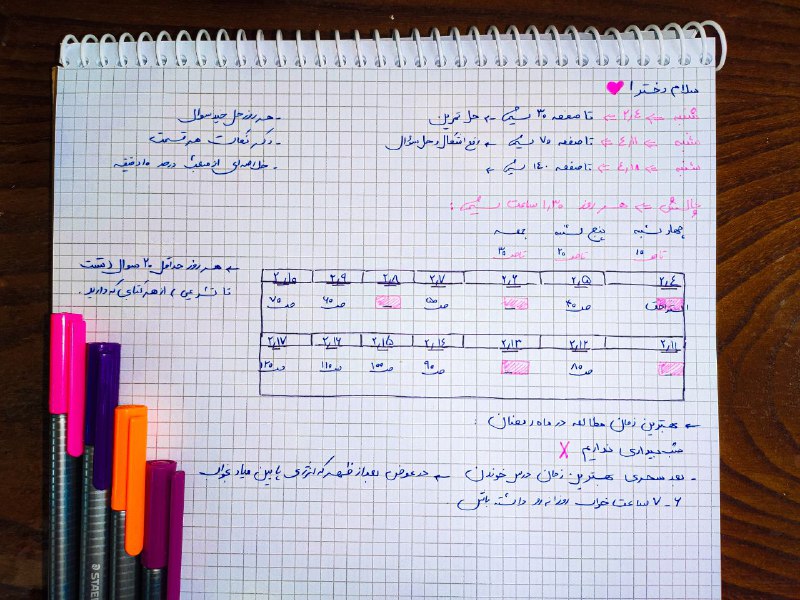 سلام دخترا
شنبه => ۲٫۴ => تا صفحه ۳۰ شیمی => حل تمرین
- هر روز حل چند سوال
شنبه => ۴٫۱۱ => تا صفحه ۷۰ شیمی => رفع اشکال و حل سؤال
- ذکر نکات هر قسمت
شنبه => ۴٫۱۸ => تا صفحه ۱۴۰ شیمی =>
چالش => هر روز ۱٫۳۰ ساعت شیمی :
چهارشنبه پنج شنبه جمعه
تا ص ۱۵ تا ص ۲۵ تا ص ۳۵
← هر روز حداقل ۲۰ سوال (تست
یا تشریحی) از هر کتابی که دارید.
۲٫۴ ۲٫۵ ۲٫۶ ۲٫۷ ۲٫۸ ۲٫۹ ۲٫۱۰
استراحت ص ۴۵ ص ۵۵ ص ۶۵ ص ۷۵
۲٫۱۱ ۲٫۱۲ ۲٫۱۳ ۲٫۱۴ ۲٫۱۵ ۲٫۱۶ ۲٫۱۷
ص ۸۵ ص ۹۵ ص ۱۰۰ ص ۱۱۰ ص ۱۲۵
← بهترین زمان مطالعه در ماه رمضان :
شب بیداری نداریم X
- بعد سحری بهترین زمان درس خوندن ← در عوض بعد از ظهر که انرژی پایین میاد بخواب
۶ - ۷ ساعت خواب روزانه رو داشته باش
STAED